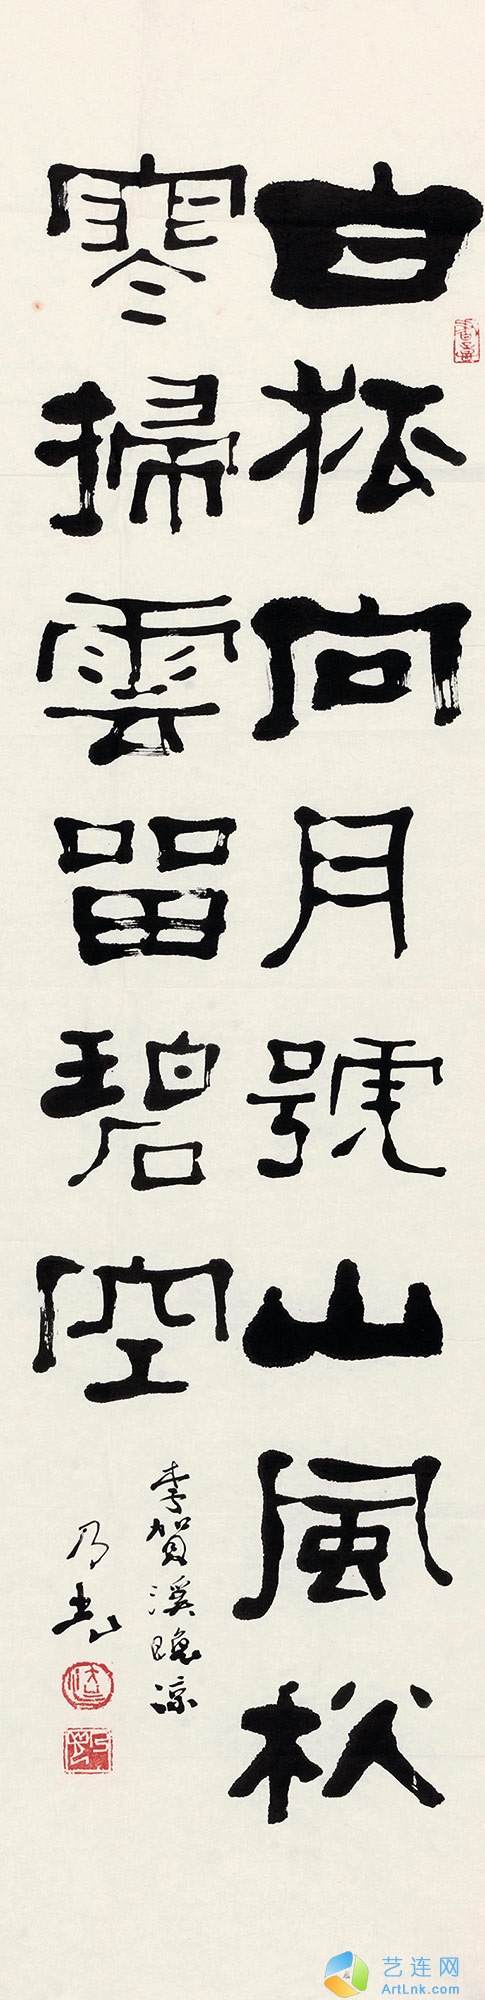 白狐向月號山風秋
寒掃雲留碧空
李賀溪晚涼
乃
艺连网
ArtLnk.com